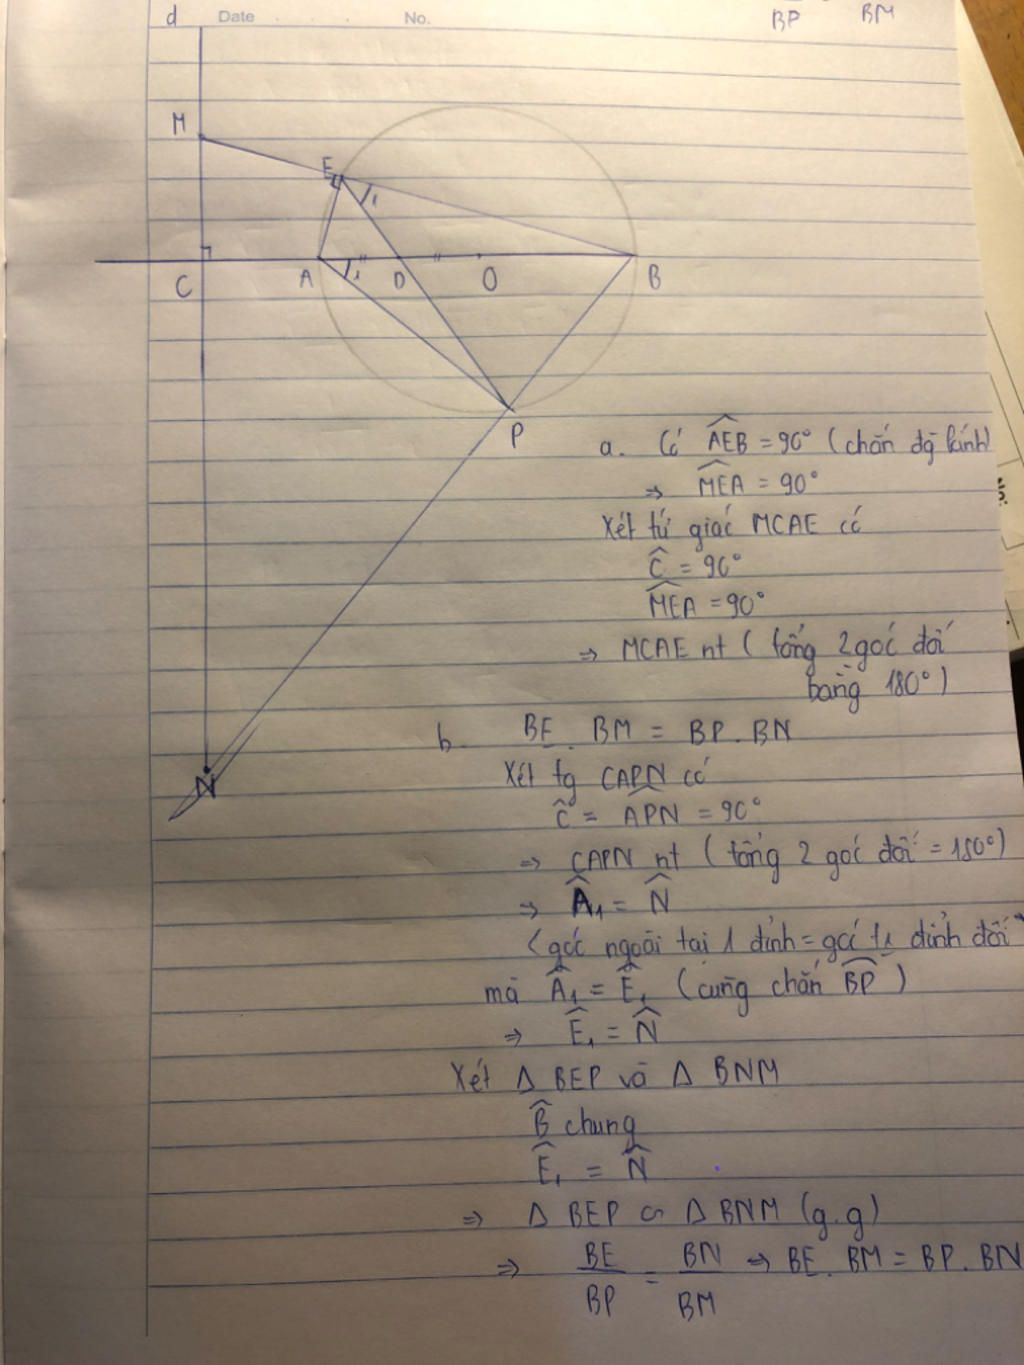 d Date No.
BP BM
M
E
1
C A 1 D O B
P
a. Có AEB = 90° (chắn đg kính)
⇒ MEA = 90°
Xét tứ giác MCAE có
Ĉ = 90°
MEA = 90°
⇒ MCAE nt ( tổng 2 góc đối
bằng 180°)
b. BE . BM = BP . BN
Xét tg CAPN có
N
Ĉ = APN = 90°
⇒ CAPN nt ( tổng 2 góc đối = 180°)
⇒ Â₁ = N̂
(góc ngoài tại 1 đỉnh = góc đỉnh đối
mà Â₁ = Ê₁ (cùng chắn BP)
⇒ Ê₁ = N̂
Xét Δ BEP và Δ BNM
B̂ chung
Ê₁ = N̂
⇒ Δ BEP ∽ Δ BNM (g.g)
⇒ BE/BP = BN/BM ⇒ BE . BM = BP . BN